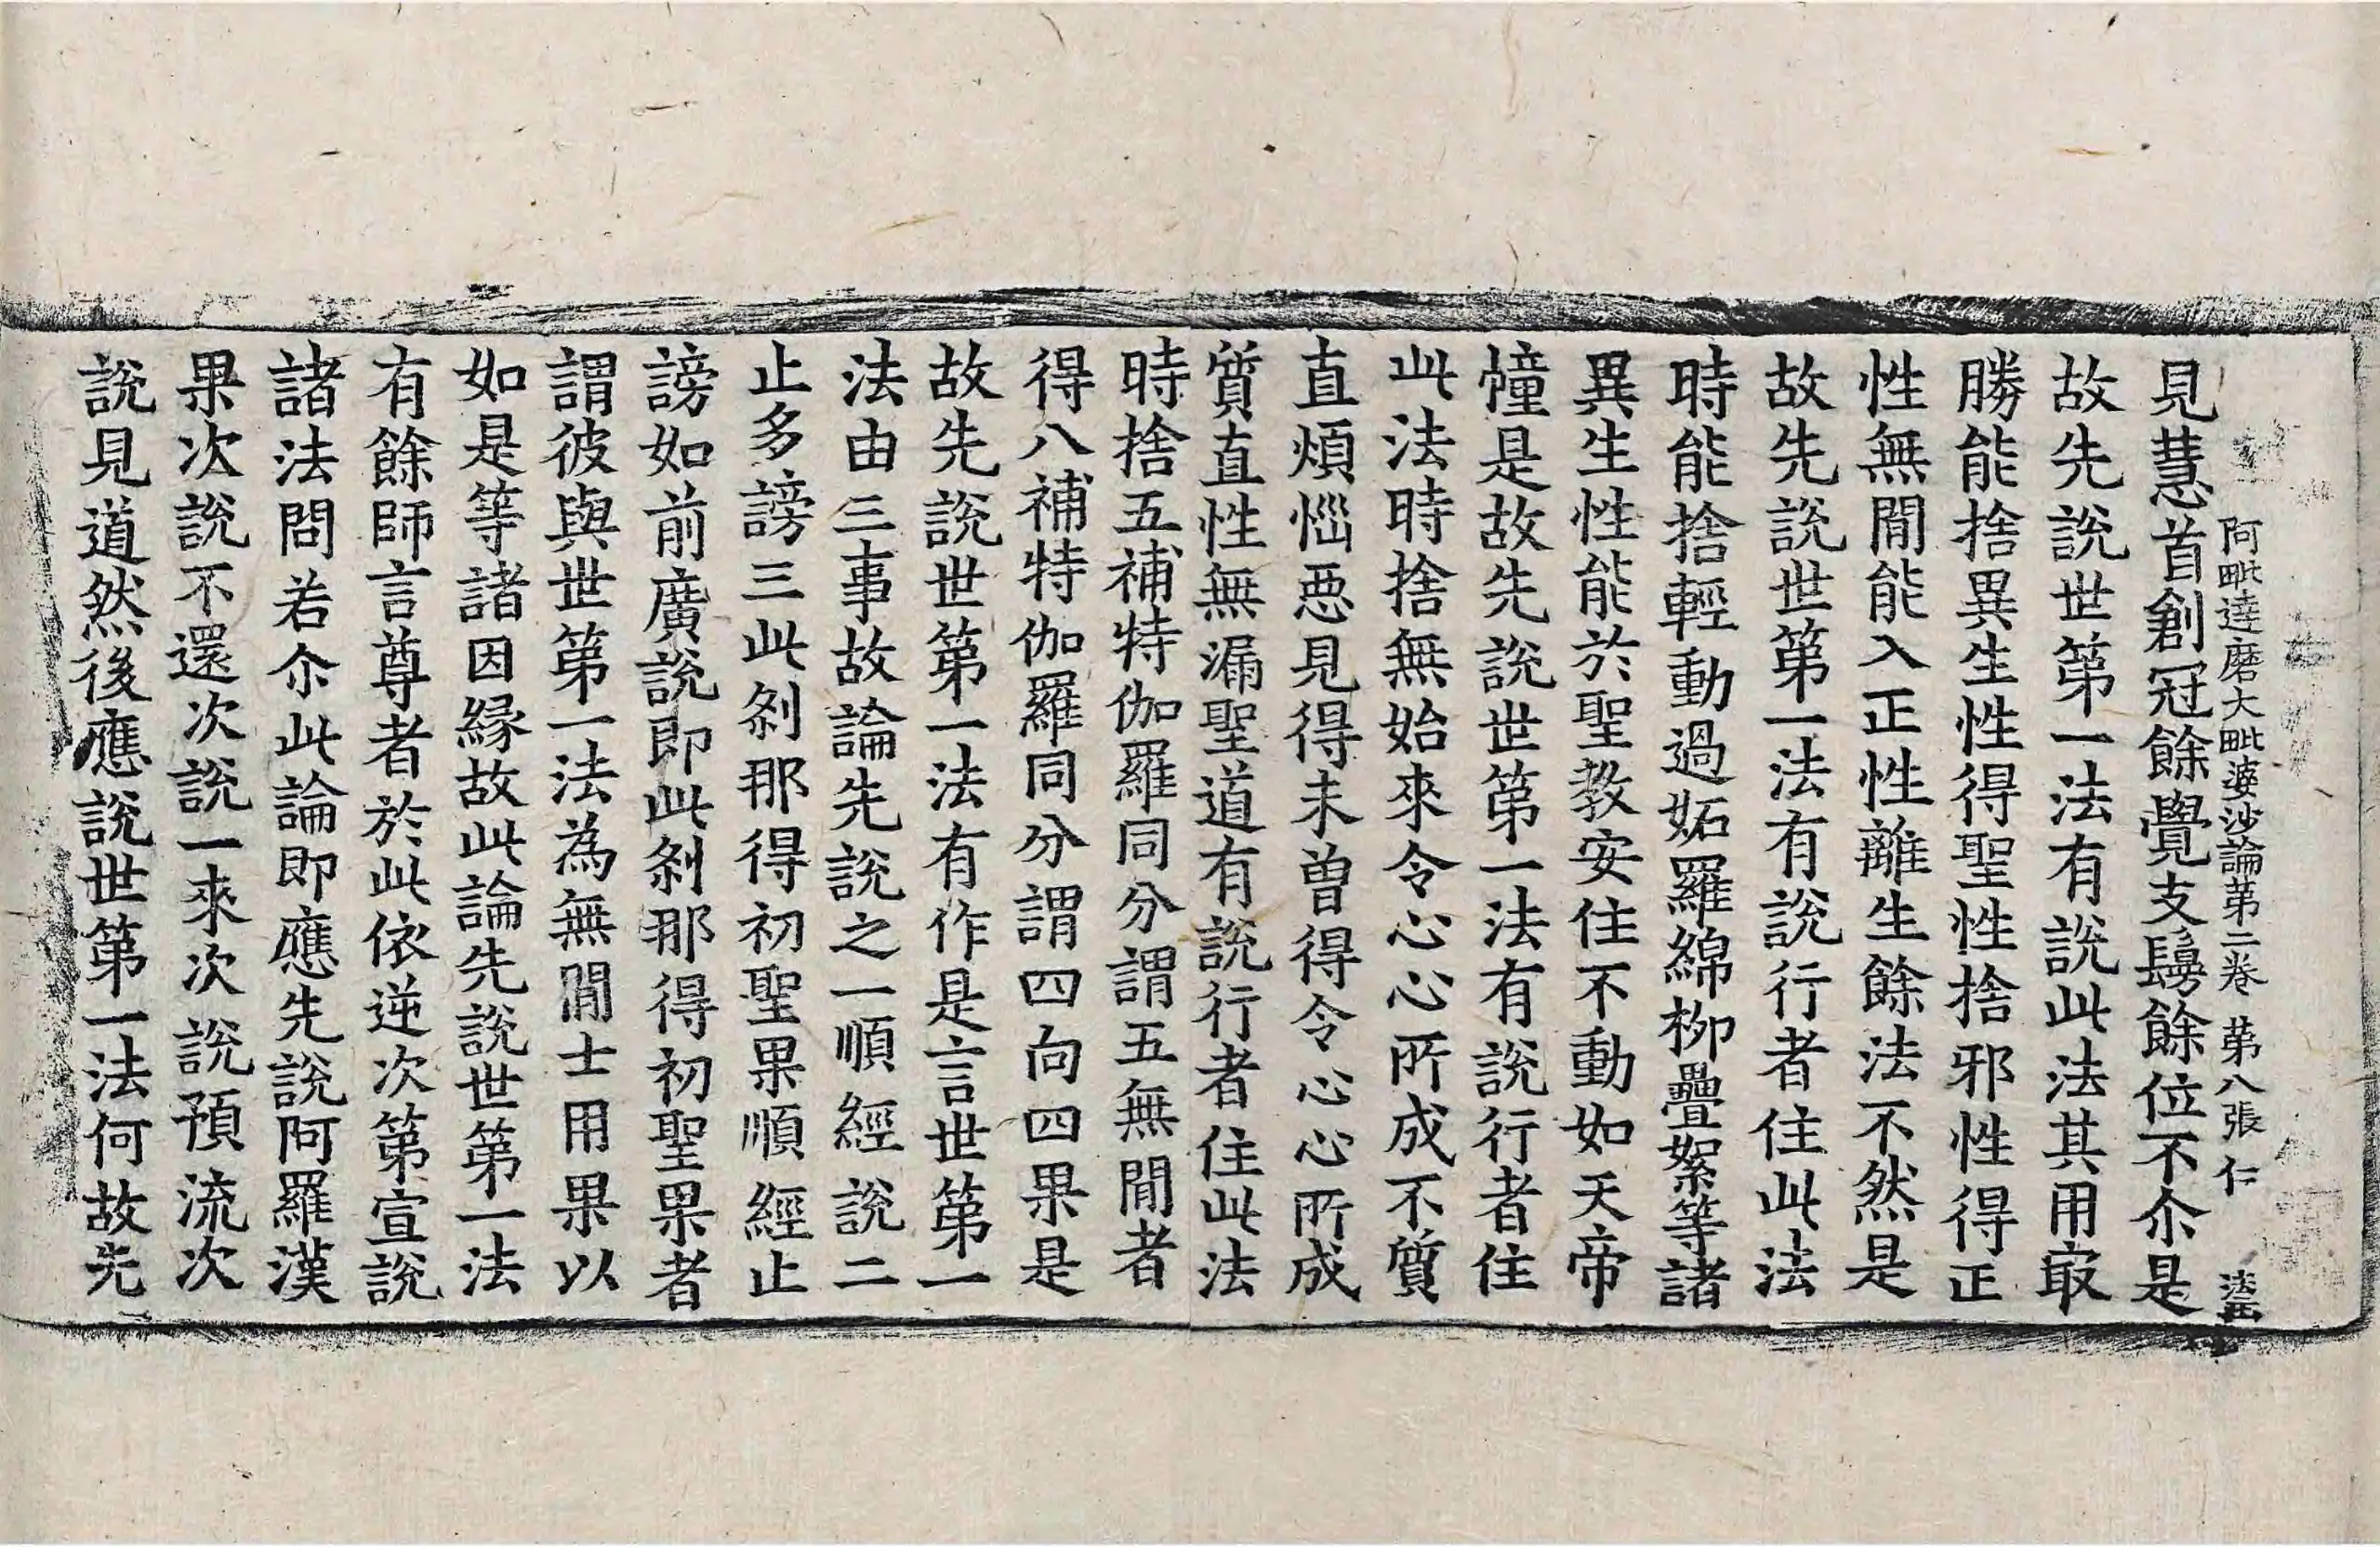 阿毗達磨大毗婆沙論第二卷 第八張 仁
見慧首創冠餘覺支鬘餘位不尒是
故先說世第一法有說此法其用㝡
勝能捨異生性得聖性捨邪性得正
性無閒能入正性離生餘法不然是
故先說世第一法有說行者住此法
時能捨輕動過妬羅綿柳疊絮等諸
異生性能於聖教安住不動如天帝
幢是故先說世第一法有說行者住
此法時捨無始來令心心所成不質
直煩惱惡見得未曾得令心心所成
質直性無漏聖道有說行者住此法
時捨五補特伽羅同分謂五無閒者
得八補特伽羅同分謂四向四果是
故先說世第一法有作是言世第一
法由三事故論先說之一順經說二
止多謗三此剎那得初聖果順經止
謗如前廣說即此剎那得初聖果者
謂彼與世第一法為無閒士用果以
如是等諸因緣故此論先說世第一法
有餘師言尊者於此依逆次第宣說
諸法問若尒此論即應先說阿羅漢
果次說不還次說一來次說預流次
說見道然後應說世第一法何故先